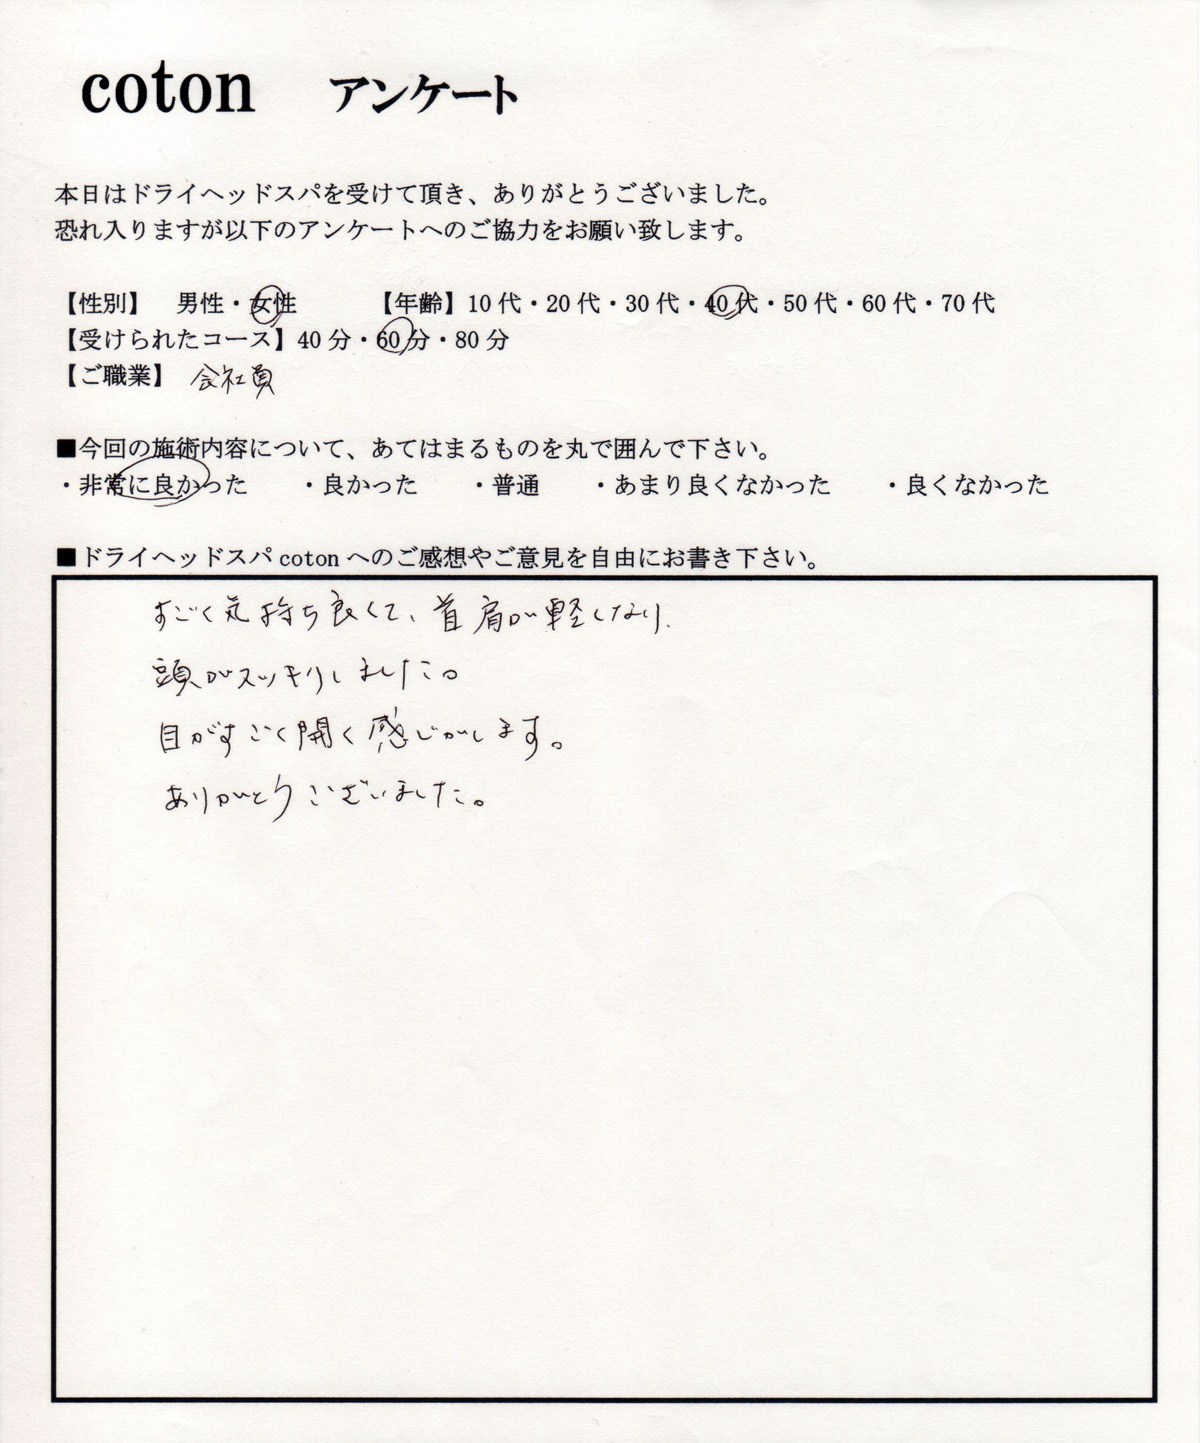 coton アンケート
本日はドライヘッドスパを受けて頂き、ありがとうございました。
恐れ入りますが以下のアンケートへのご協力をお願い致します。
【性別】 男性・女性 【年齢】10代・20代・30代・40代・50代・60代・70代
【受けられたコース】40分・60分・80分
【ご職業】 会社員
■今回の施術内容について、あてはまるものを丸で囲んで下さい。
・非常に良かった ・良かった ・普通 ・あまり良くなかった ・良くなかった
■ドライヘッドスパcotonへのご感想やご意見を自由にお書き下さい。
すごく気持ち良くて、首肩が軽くなり、
頭がスッキリしました。
目がすごく開く感じがします。
ありがとうございました。